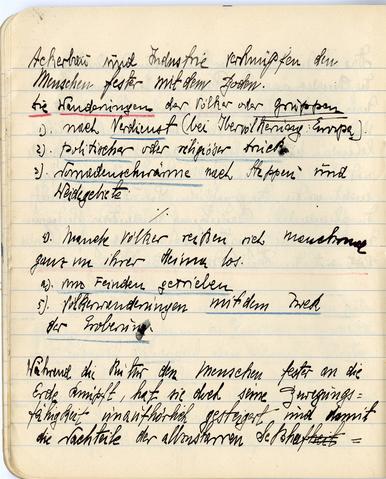 Ackerbau und Industrie verknüpfen den
Menschen fester mit dem Boden.
Die Wanderungen der Völker oder Gruppen
1). nach Verdienst (bei Übervölkerung: Europa).
2). politischer oder religiöser Druck
3). Nomadenschwärme nach Steppen und
Weidegebiete.
Manche Völker reißen sich manchmal
ganz von ihrer Heimat los.
von Feinden getrieben
5). Völkerwanderungen mit dem Zweck
der Eroberung
Während die Kultur den Menschen fester an die
Erde knüpft, hat sie doch seine Bewegungs=
fähigkeit unaufhörlich gesteigert und damit
die Nachteile der allzustarren